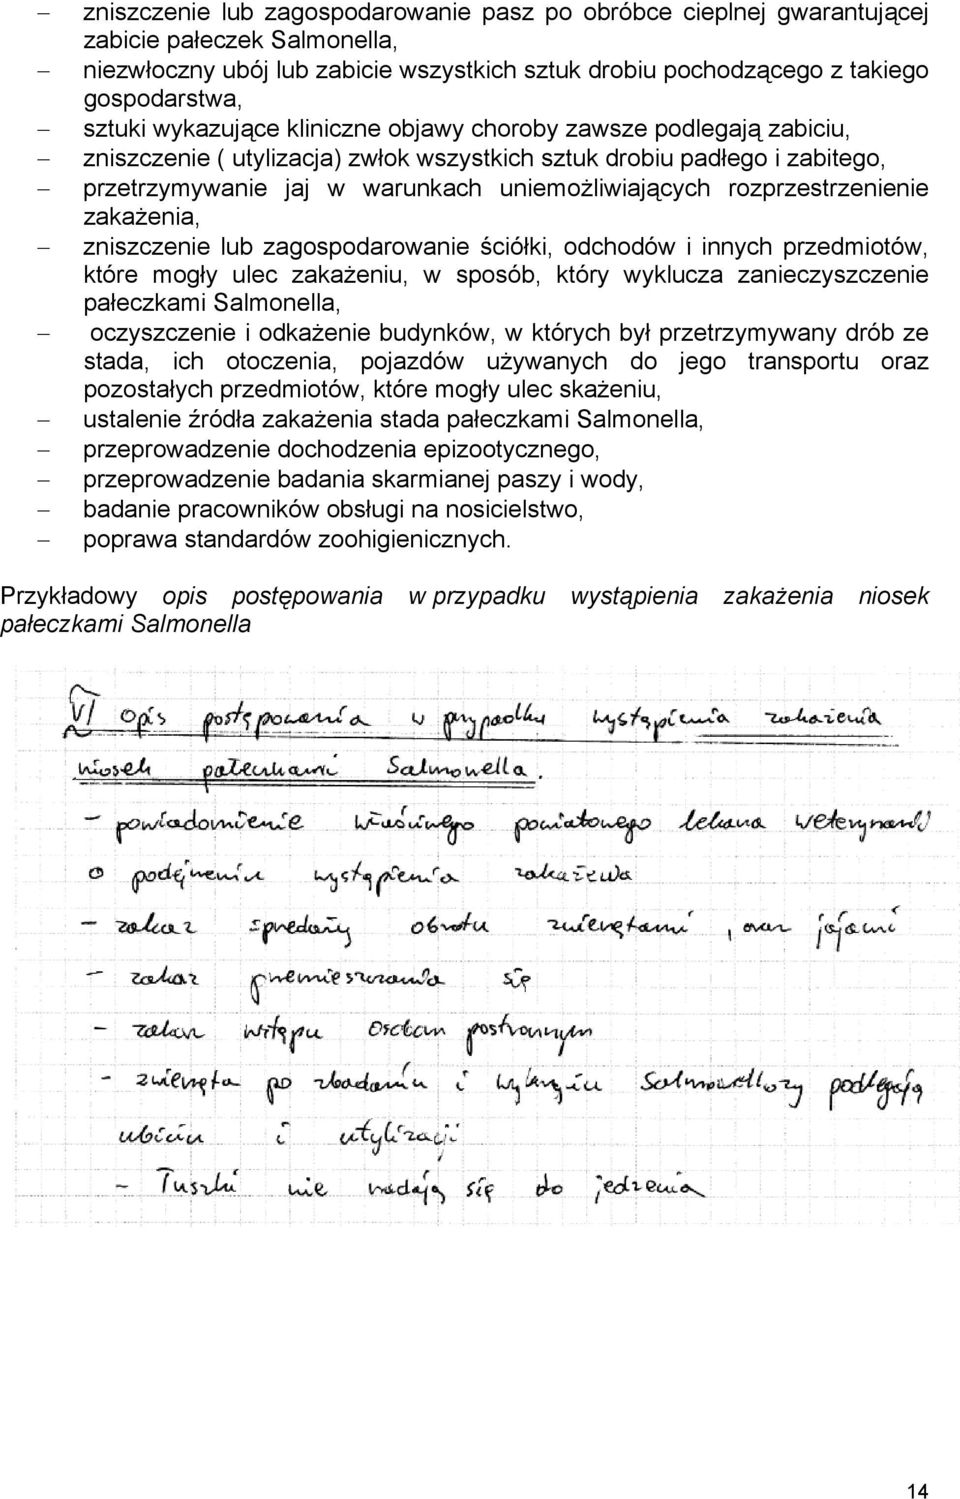 – zniszczenie lub zagospodarowanie pasz po obróbce cieplnej gwarantującej
zabicie pałeczek Salmonella,
– niezwłoczny ubój lub zabicie wszystkich sztuk drobiu pochodzącego z takiego
gospodarstwa,
– sztuki wykazujące kliniczne objawy choroby zawsze podlegają zabiciu,
– zniszczenie ( utylizacja) zwłok wszystkich sztuk drobiu padłego i zabitego,
– przetrzymywanie jaj w warunkach uniemożliwiających rozprzestrzenienie
zakażenia,
– zniszczenie lub zagospodarowanie ściółki, odchodów i innych przedmiotów,
które mogły ulec zakażeniu, w sposób, który wyklucza zanieczyszczenie
pałeczkami Salmonella,
– oczyszczenie i odkażenie budynków, w których był przetrzymywany drób ze
stada, ich otoczenia, pojazdów używanych do jego transportu oraz
pozostałych przedmiotów, które mogły ulec skażeniu,
– ustalenie źródła zakażenia stada pałeczkami Salmonella,
– przeprowadzenie dochodzenia epizootycznego,
– przeprowadzenie badania skarmianej paszy i wody,
– badanie pracowników obsługi na nosicielstwo,
– poprawa standardów zoohigienicznych.
Przykładowy opis postępowania w przypadku wystąpienia zakażenia niosek
pałeczkami Salmonella
VI opis postępowania w przypadku wystąpienia zakażenia
niosek pałeczkami Salmonella.
- powiadomienie właściwego powiatowego lekarza weterynarii
o podejrzeniu wystąpienia zakażenia
- zakaz sprzedaży obrotu zwierzętami, oraz jajami
- zakaz przemieszczania się
- zakaz wstępu osobom postronnym
- zwierzęta po zbadaniu i wykryciu Salmonellozy podlegają
ubiciu i utylizacji
- Tuszki nie nadają się do jedzenia
14